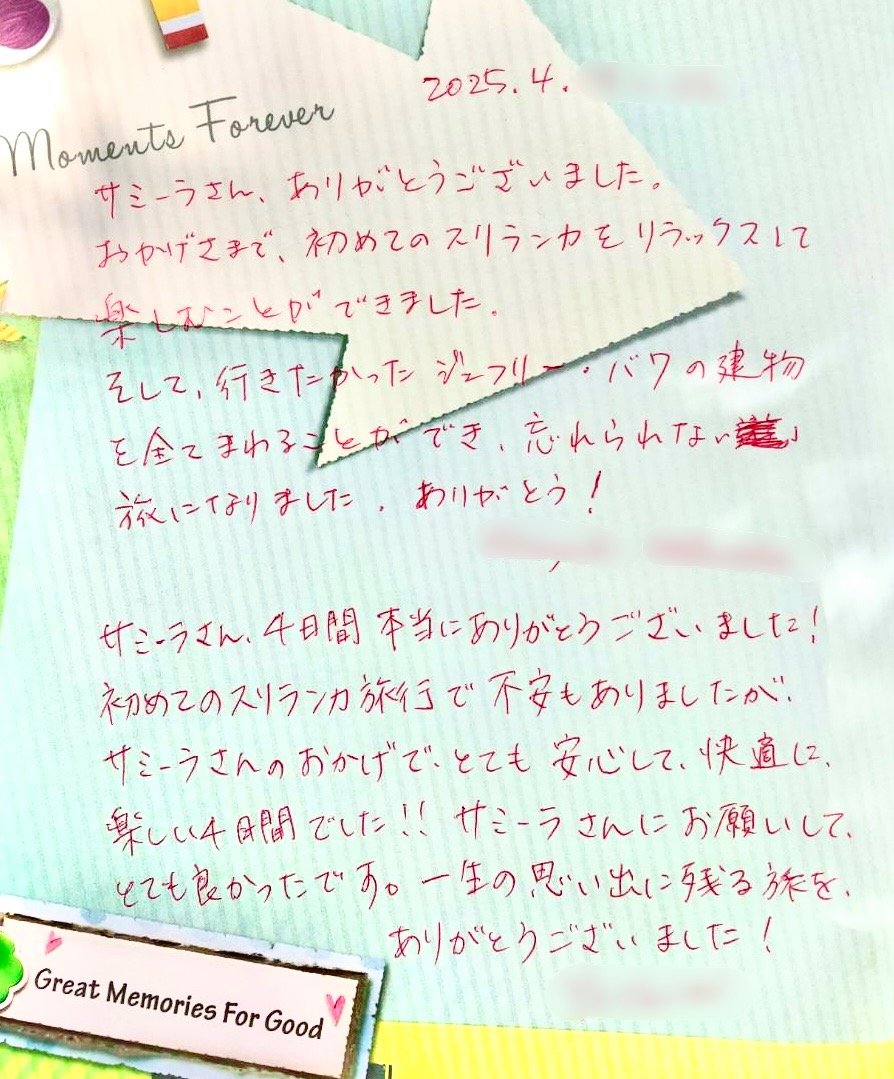 2025.4.
Moments Forever
サミーラさん、ありがとうございました。
おかげさまで、初めてのスリランカをリラックスして
楽しむことができました。
そして、行きたかったジェフリー・バワの建物
を全てまわることができ、忘れられない
旅になりました。ありがとう!
サミーラさん、4日間本当にありがとうございました!
初めてのスリランカ旅行で不安もありましたが、
サミーラさんのおかげで、とても安心して、快適に、
楽しい4日間でした!! サミーラさんにお願いして、
とても良かったです。一生の思い出に残る旅を、
ありがとうございました!
Great Memories For Good